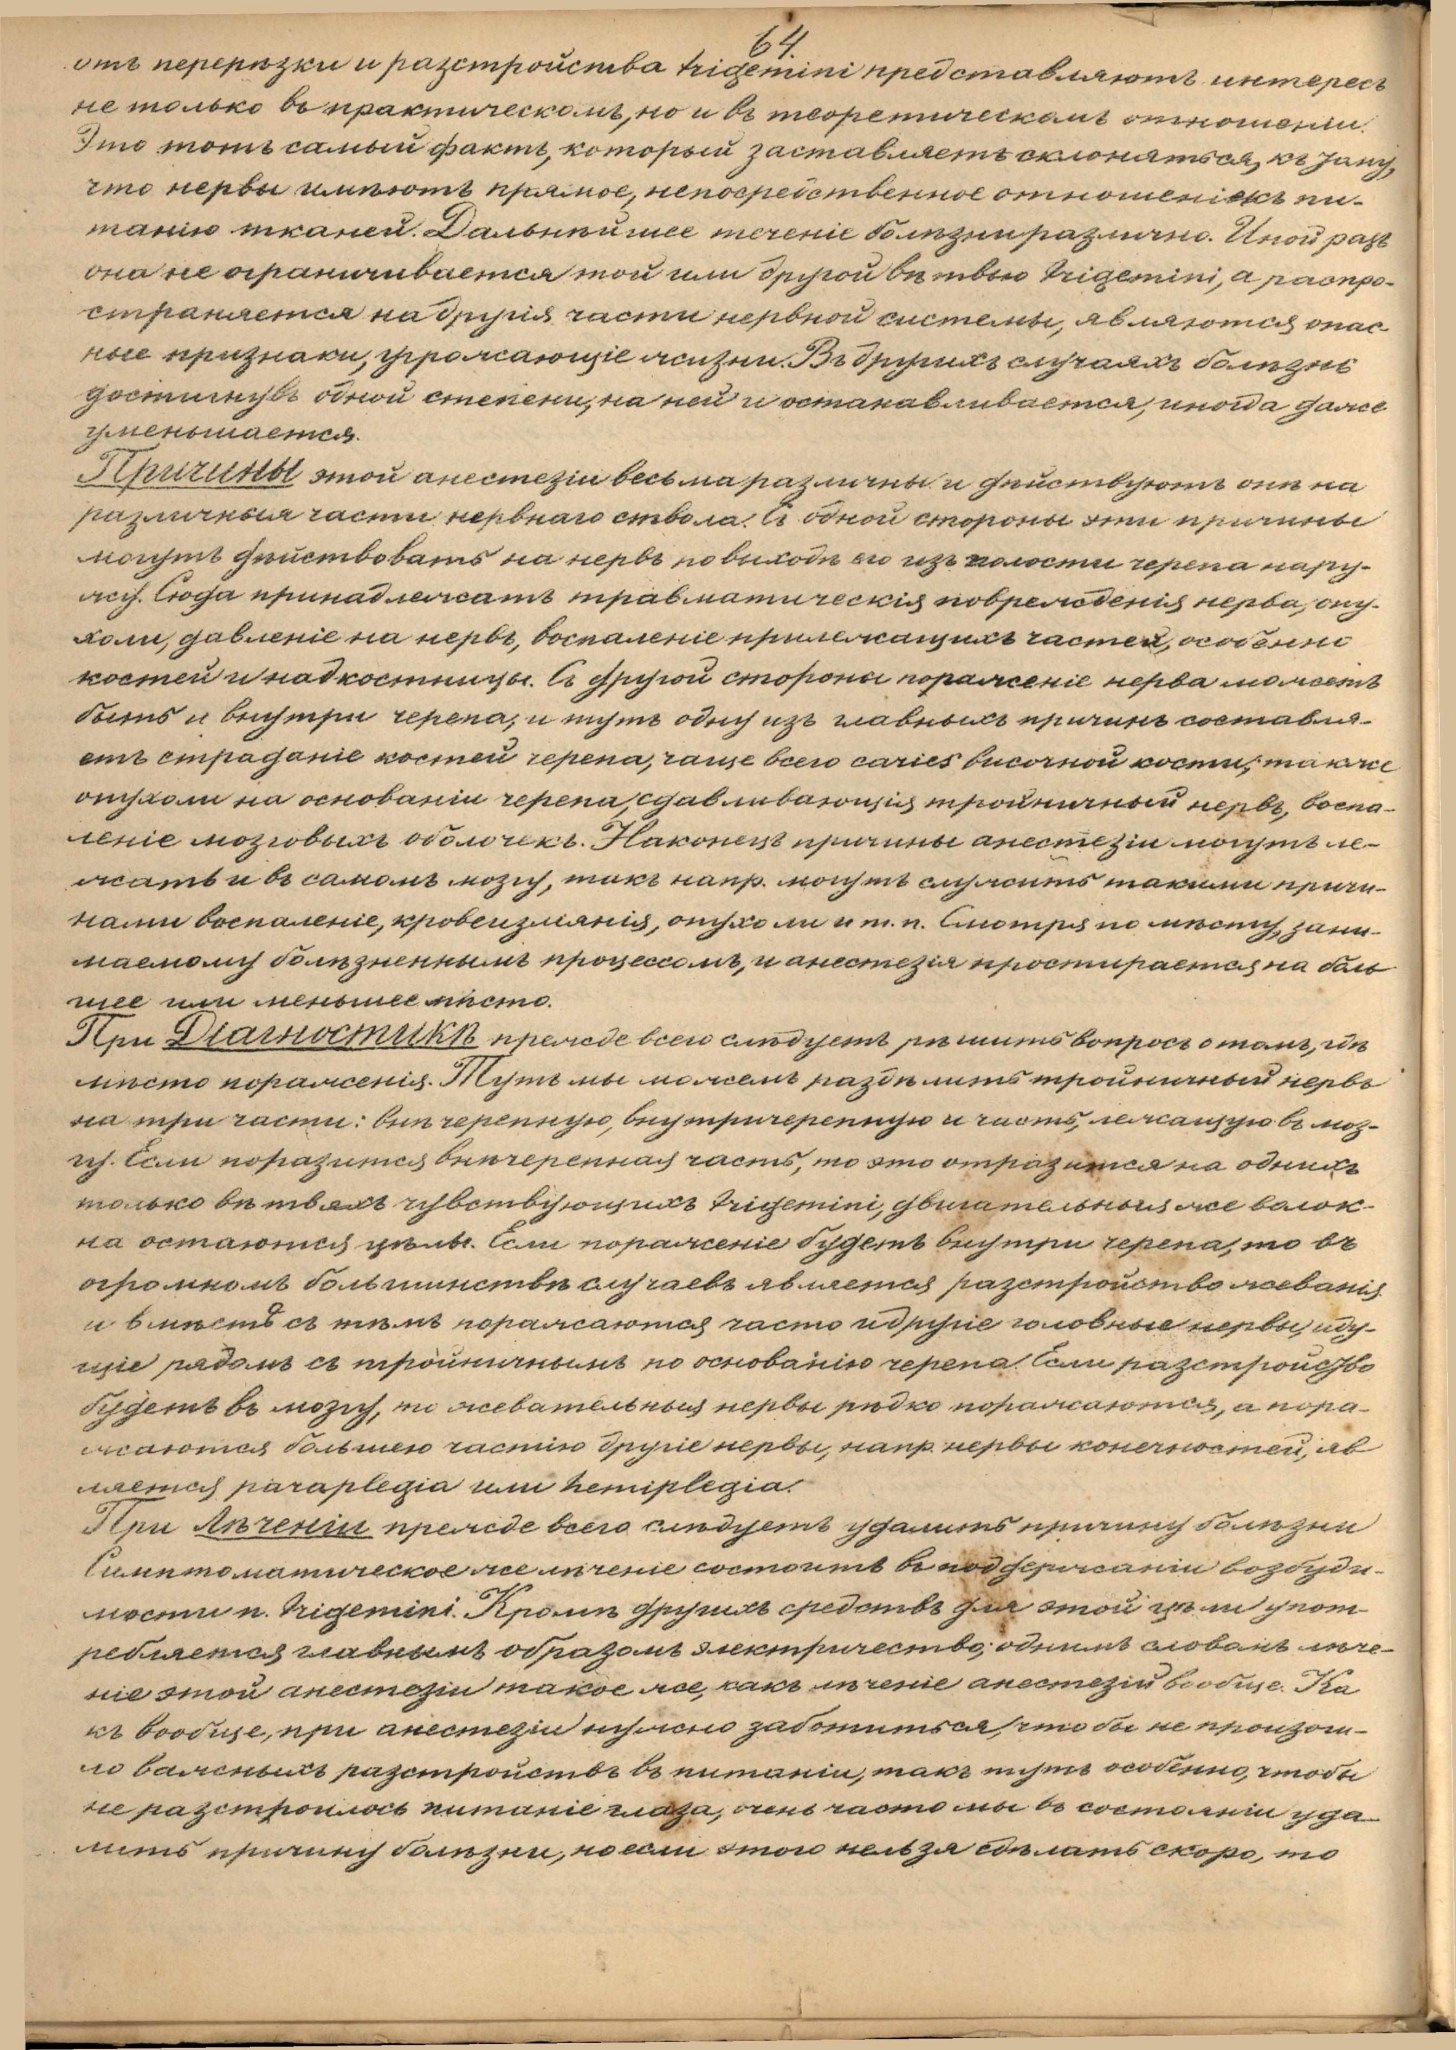 64.
отъ перерѣзки и разстройства trigemini представляютъ интересъ
не только въ практическомъ, но и въ теоретическомъ отношеніи.
Это тотъ самый фактъ, который заставляетъ склоняться, къ
что нервы имѣютъ прямое, непосредственное отношеніе къ пи-
танію тканей. Дальнѣйшее теченіе болѣзни различно. Иной разъ
она не ограничивается той или другой вѣтвью trigemini, а распро-
страняется на другія части нервной системы, являются опас-
ные признаки, угрожающіе жизни. Въ другихъ случаяхъ болѣзнь
достигнувъ одной степени, на ней и останавливается, иногда даже
уменьшается.
Причины этой анестезіи весьма различны и дѣйствуютъ онѣ на
различныя части нервнаго ствола. Съ одной стороны эти причины
могутъ дѣйствовать на нервъ по выходѣ его изъ полости черепа нару-
жу. Сюда принадлежатъ травматическія поврежденія нерва, опу-
холи, давленіе на нервъ, воспаленіе прилежащихъ частей, особенно
костей и надкостницы. Съ другой стороны пораженіе нерва можетъ
быть и внутри черепа, и тутъ одну изъ главныхъ причинъ составля-
етъ страданіе костей черепа, чаще всего caries височной кости, также
опухоли на основаніи черепа, сдавливающія тройничный нервъ, воспа-
леніе мозговыхъ оболочекъ. Наконецъ причины анестезіи могутъ ле-
жать и въ самомъ мозгу, такъ напр. могутъ служить такими причи-
нами воспаленіе, кровеизліянія, опухоли и т. п. Смотря по мѣсту, зани-
маемому болѣзненнымъ процессомъ, и анестезія простирается на боль
шее или меньшее мѣсто.
При Діагностикѣ прежде всего слѣдуетъ рѣшить вопросъ о томъ, гдѣ
мѣсто пораженія. Тутъ мы можемъ раздѣлить тройничный нервъ
на три части: внѣчерепную, внутричерепную и часть, лежащую въ моз-
гу. Если поразится внѣчерепная часть, то это отразится на однихъ
только вѣтвяхъ чувствующихъ trigemini, двигательныя же волок-
на остаются цѣлы. Если пораженіе будетъ внутри черепа, то въ
огромномъ большинствѣ случаевъ является разстройство жеванія
и вмѣстѣ съ тѣмъ поражаются часто и другіе головные нервы, иду-
щіе рядомъ съ тройничнымъ по основанію черепа. Если разстройство
будетъ въ мозгу, то жевательныя нервы рѣдко поражаются, а пора-
жаются большею частію другіе нервы, напр. нервы конечностей, яв
ляется paraplegia или hemiplegia.
При Лѣченіи прежде всего слѣдуетъ удалить причину болѣзни
Симптоматическое же лѣченіе состоитъ въ поддержаніи возбуди-
мости n. trigemini. Кромѣ другихъ средствъ для этой цѣли упот-
ребляется главнымъ образомъ электричество; однимъ словомъ лѣче-
ніе этой анестезіи такое же, какъ лѣченіе анестезій вообще. Ка
къ вообще, при анестезіи нужно заботиться, чтобы не произош-
ло важныхъ разстройствъ въ питаніи, такъ тутъ особенно, чтобы
не разстроилось питаніе глаза, очень часто мы въ состояніи уда-
лить причину болѣзни, но если этого нельзя сдѣлать скоро, то